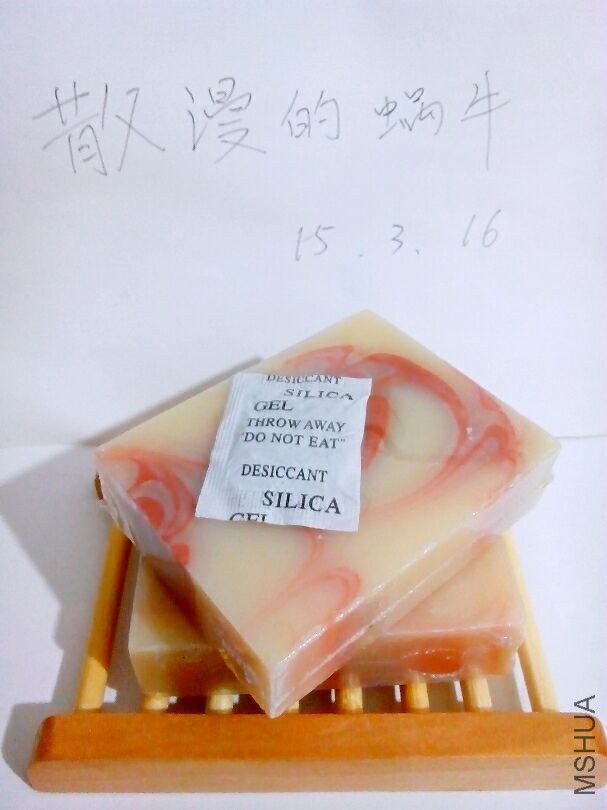 散漫的蜗牛
15.3.16
DESICCANT
SILICA
GEL
THROW AWAY
"DO NOT EAT"
DESICCANT
SILICA
GEL
MSHUA